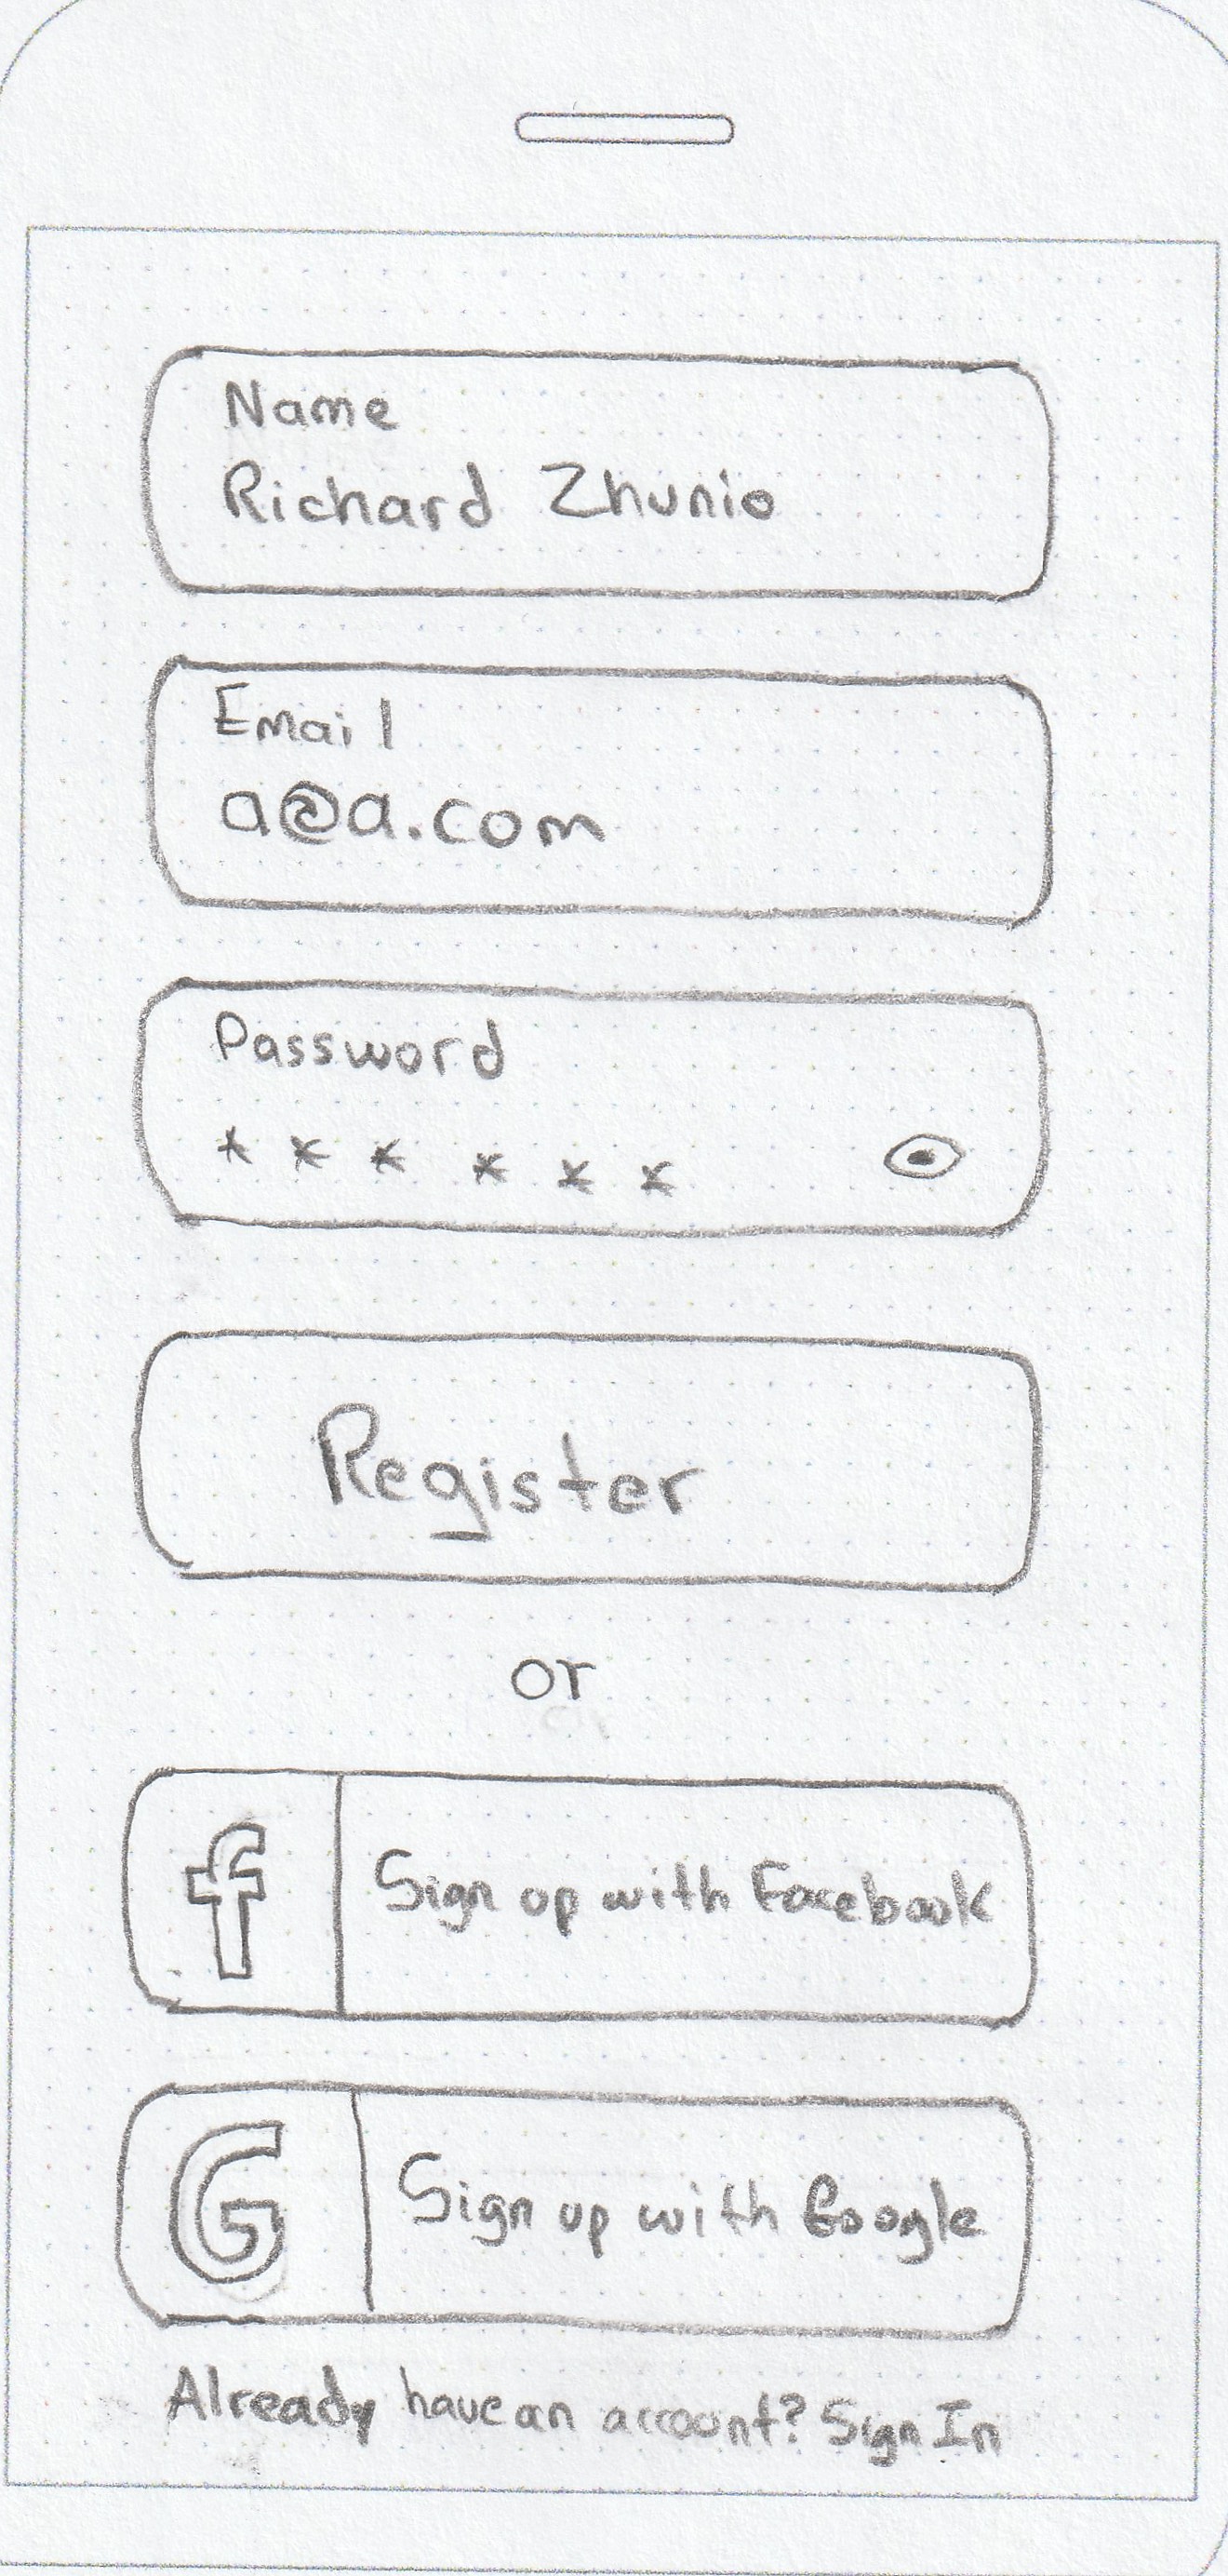 Name
Richard Zhunio
Email
a@a.com
Password
* * * * * *
Register
or
f
Sign up with Facebook
G
Sign up with Google
Already have an account? Sign In